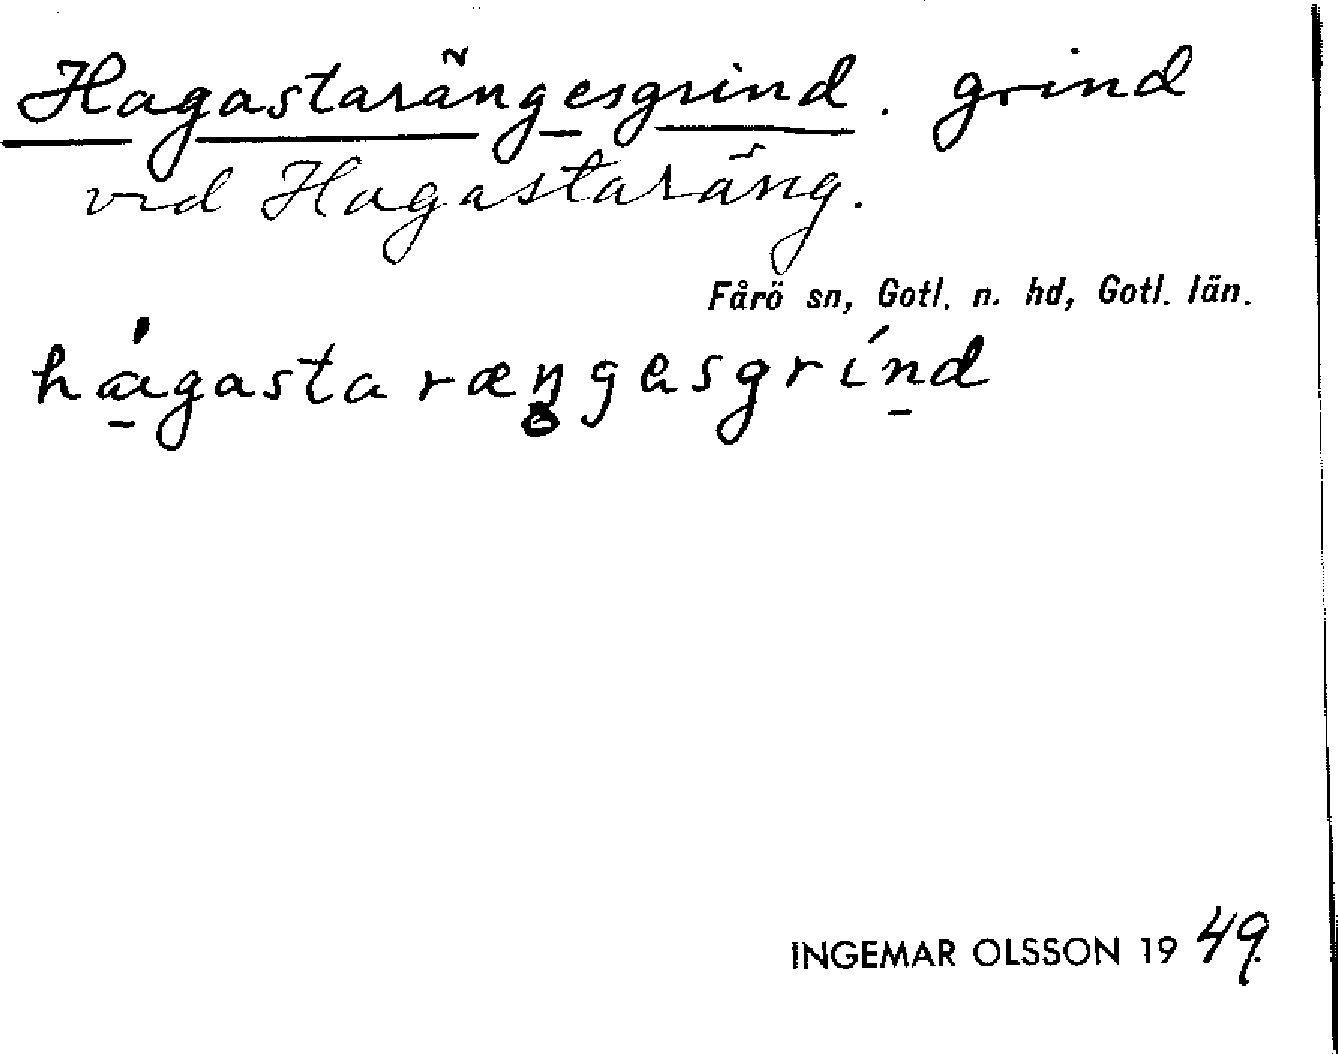 Hagastarängesgrind. grind
vid Hagastaräng.
Fårö sn, Gotl. n. hd, Gotl. län.
hágastaræŋgesgrínd
INGEMAR OLSSON 1949